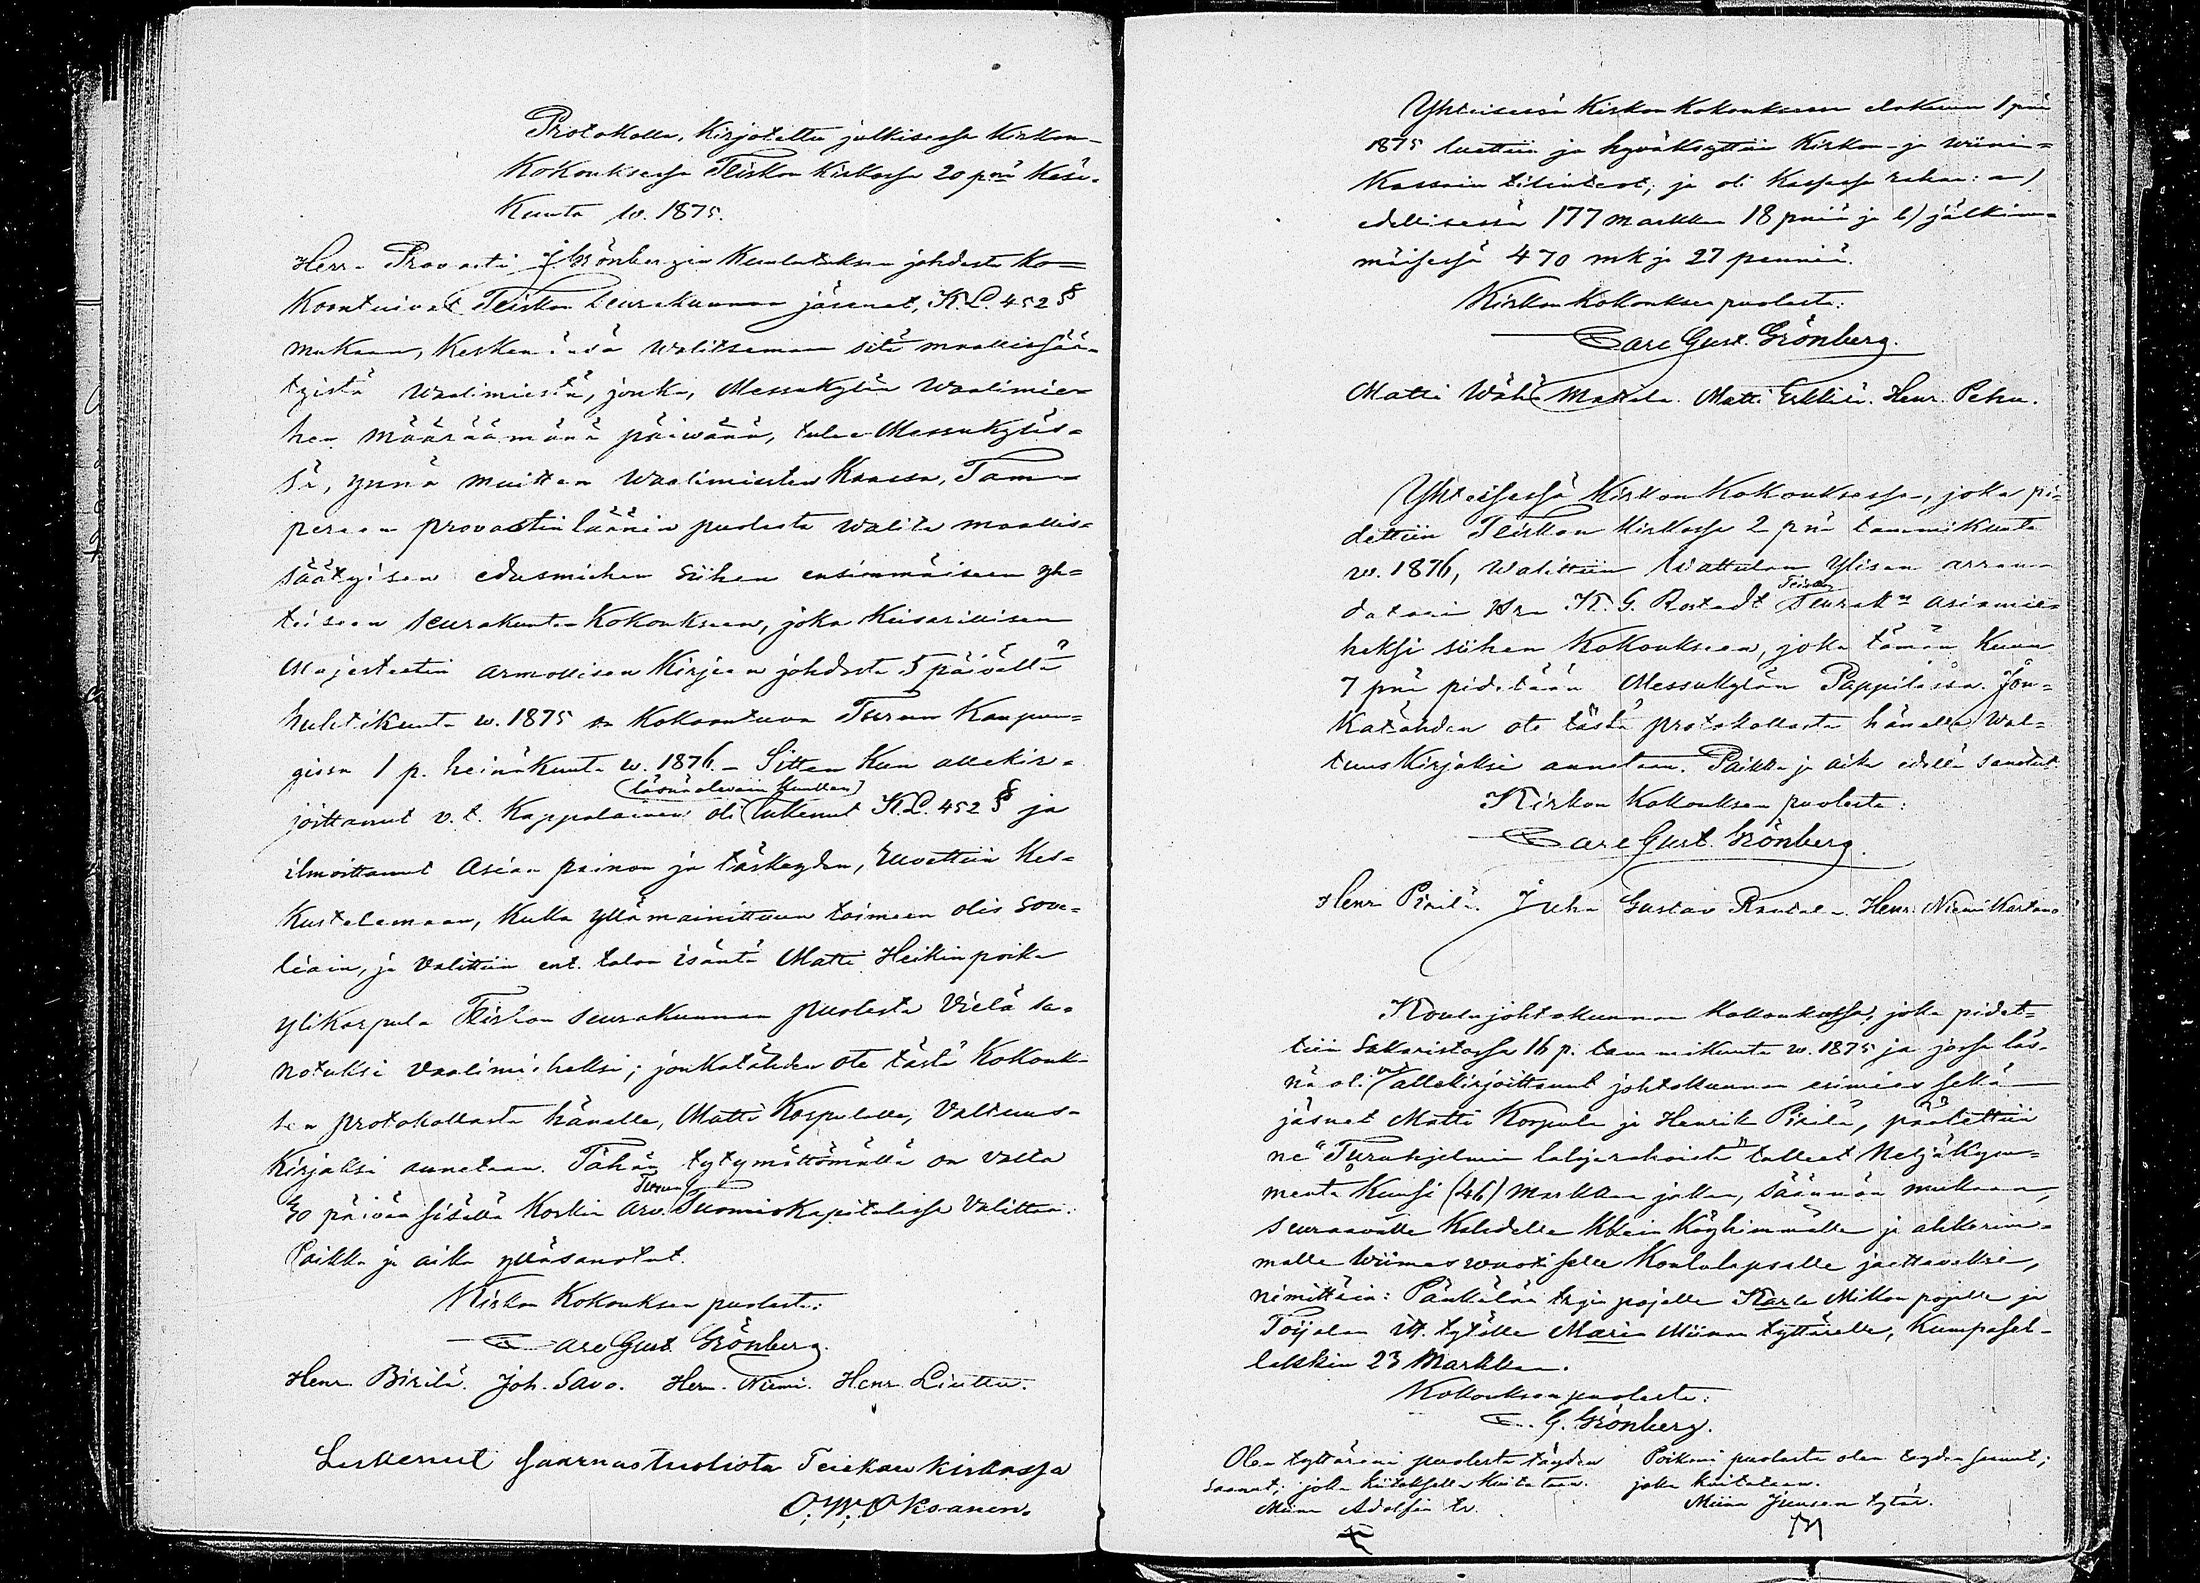 Protokolla, Kirjotettu julkisessa Kirkon-
Kokouksessa Teiskon Kirkossa 20 pnä Kesä-
Kuuta w. 1875.
Herra Provasti J. Grönbergin Kuulutuksen johdosta ko=
Koontuivat Teiskon seurakunnan jäsenet, K.L. 452 §
mukaan, Keskenänsä walitsemaan sitä maallissää-
tyistä waalimiestä, jonka, Messukylän waalimie-
hen määräämänä päiwänä, tulee Messukyläs-
sä, ynnä muitten waalimiesten Kanssa, Tam-
pereen provastin läänin puolesta walita maallis-
säätyisen edusmiehen siihen ensimmäiseen yh=
teiseen seurakunta Kokoukseen, joka Keisarillisen
Majesteetin armollisen Kirjeen johdosta 5 päivältä
huhtikuuta w. 1875 on Kokoontuva Turun Kaupun=
gissa 1 p. heinäkuuta w. 1876. - Sitten Kun allekir-
(läsnäolevain Kuullen)
joittanut v.t. Kappalainen oli lukenut K.L. 452 § ja
ilmoittanut asian painon ja tärkeyden, ruvettiin Kes-
Kustelemaan, Kuka yllämainittuun toimeen olis sove-
liain, ja valittiin ent. talon isäntä Matti Heikinpoika
Ylikorpula Teiskon seurakunnan puolesta Vielä sa-
notuksi Vaalimieheksi; jonkatähden ote tästä Kokouk-
sen protokollasta hänelle, Matti Korpulalle, Valtuus-
Kirjaksi annetaan. Tähän tytymättömällä on Valta
Turun
30 päivän sisällä Korkia Arv. Tuomiokapitelissa Valittaa.
Paikka ja aika ylläsanotut.
Kirkon Kokouksen puolesta:
Carl Gust. Grönberg.
Henr. Pirilä. Joh. Savo. Herm. Niemi. Henr. Liuttu.
Lukenut saarnastuolista Teiskon kirkossa
O. W. Oksanen.
Yhteisessä Kirkon Kokouksessa elokuun 1 pnä
1875 luettiin ja hyväksyttiin Kirkon- ja wiini=
Kassain tilinteot; ja oli Kassassa rahaa: a)
edellisessä 177 markkaa 18 pniä ja b) jälkim=
mäisessä 470 mk ja 27 penniä.
Kirkon Kokouksen puolesta:
Carl Gust. Grönberg.
Matti Wähä Mattila. Matti Erkkilä. Henr. Pehu.
Yhteisessä Kirkon Kokouksessa, joka pi=
dettiin Teiskon Kirkossa 2 pnä tammikuuta
w. 1876, walittiin Wattulan Ylisen arren-
Teiskon
datori Hra K. G. Rostedt Seurakn asiamie-
heksi siihen Kokoukseen, joka tämän Kuun
7 pnä pidetään Messukylän Pappilassa. Jon=
Katähden ote tästä protokollasta hänelle Wal=
tuus Kirjaksi annetaan. Paikka ja aika edellä sanotut.
Kirkon Kokouksen puolesta:
Carl Gust. Grönberg.
Henr. Pirilä. Juha Gustav Rautala. Henr. Niemikartano.
Koulujohtokunnan kokouksessa, joka pidet=
tiin Sakaristossa 16 p. tammikuuta w. 1875 ja jossa läs-
nä oli allekirjoittanut johtokunnan esimies sekä
jäsenet Matti Korpula ja Henrik Pirilä, päätettiin
ne "Turuhjelmin lahjarahoista" tulleet neljäkym=
mentä Kuusi (46) markkaa jakaa, säännön mukaan,
seuraavalle Kahdelle Köyhimmälle ja ahkerim-
malle wiimes wuotiselle Koululapselle jaettavaksi,
nimittäin: pojalle Karle Mikkon pojalle ja
tytölle Maria Miinan tyttärelle, Kumpasel-
lakkin 23 Markkaa.
Kokouksen puolesta:
C. G. Grönberg.
Olen tyttäreni puolesta täyden
saanut, joka kiitoksella kuitataan.
Miina Adolfin tr.
Poikani puolesta olen täyden saanut;
joka kuitataan.
Miina Juusen tytär.